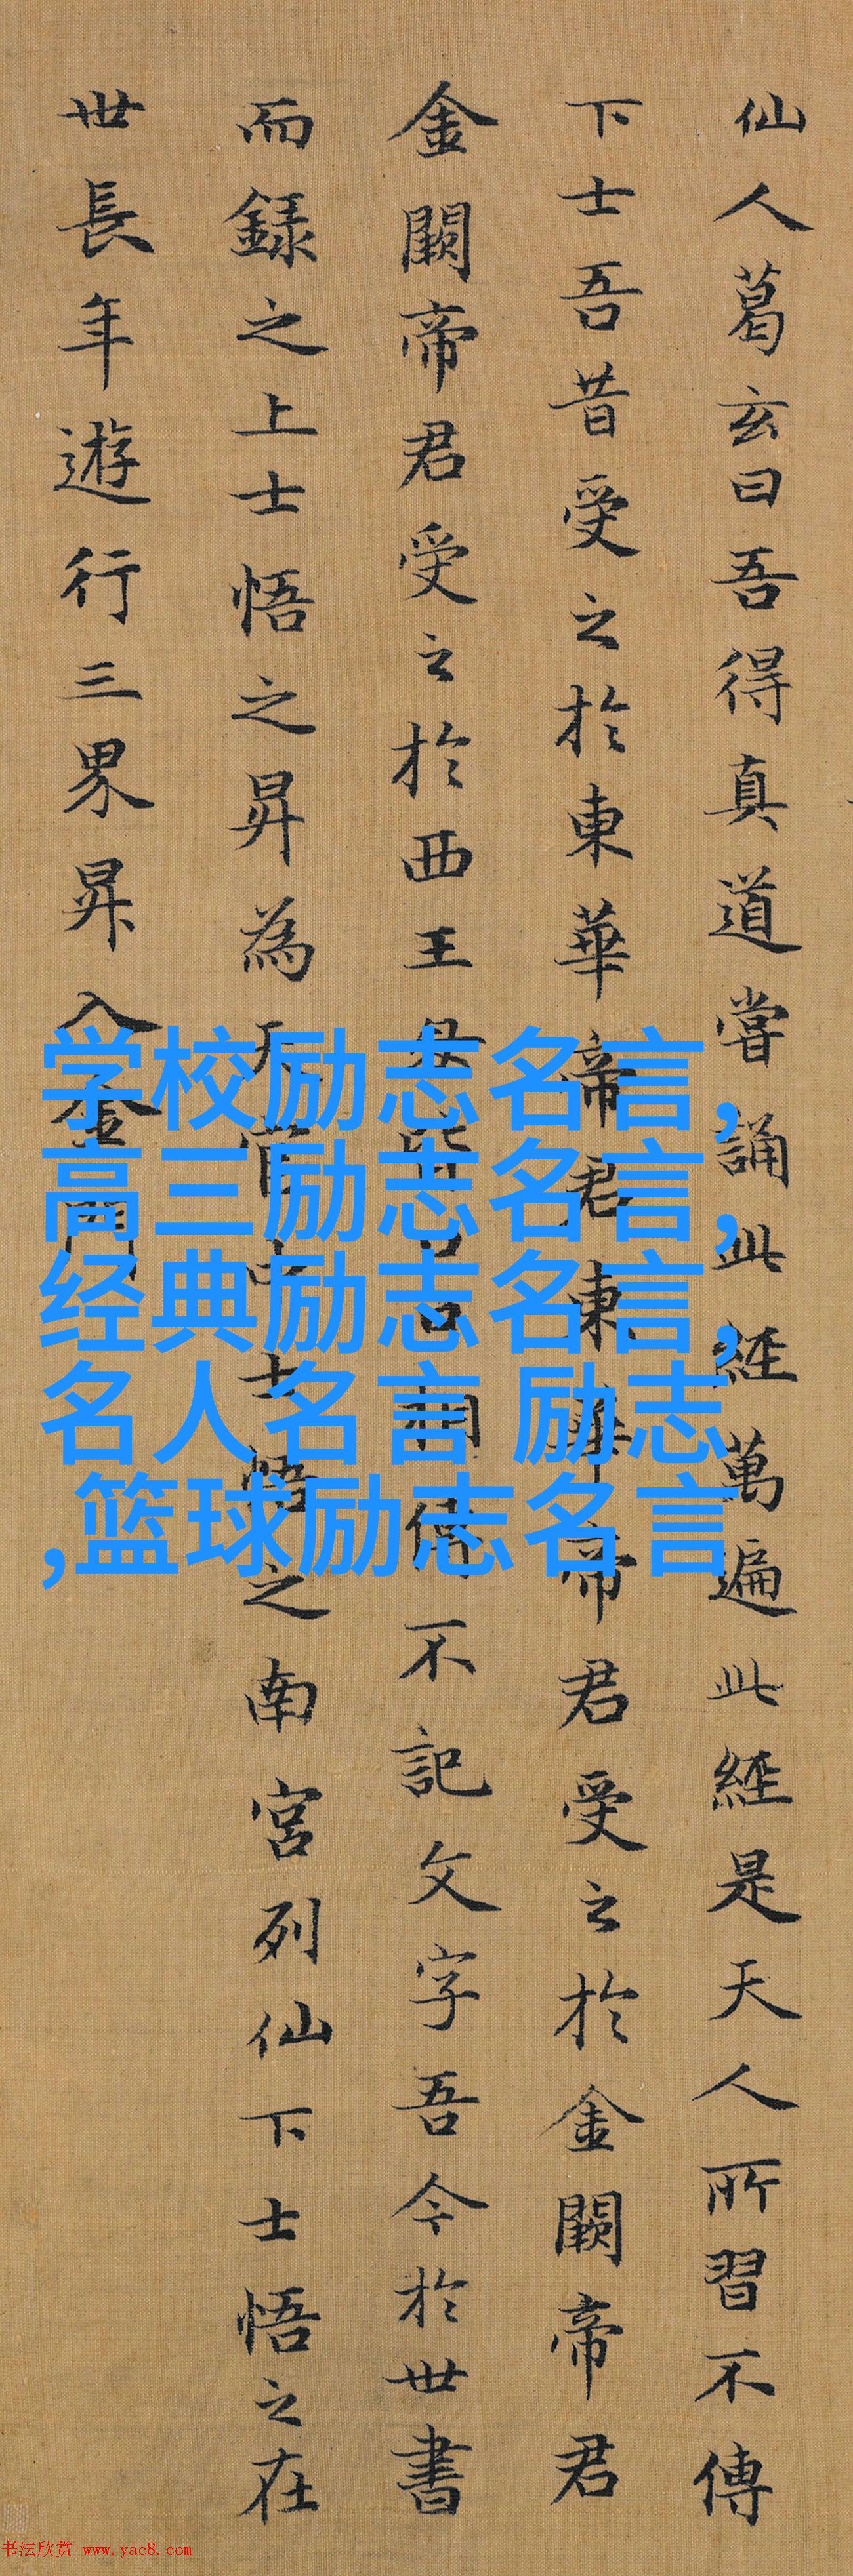 仙人葛玄曰吾得真道嘗誦此經萬遍此經是天人所習不傳
下士吾昔受之於東華帝君東華帝君受之於金闕帝君
金闕帝君受之於西王母皆口口相傳不記文字吾今於世書
而録之上士悟之昇為天官中士悟之南宮列仙下士悟之在
世長年遊行三界昇入金門
学校励志名言,
高三励志名言,
经典励志名言,
名人名言 励志
,篮球励志名言
书法欣赏 www.yac8.com